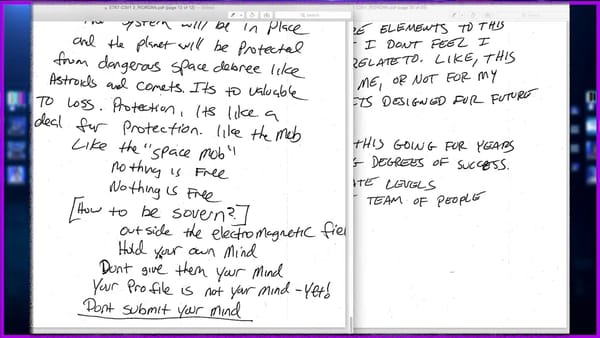 STAT-CS01 2_RIORDAN.pdf (page 12 of 12)
Search
The system will be in Place
and the planet will be Protected
from dangerous space debree like
Astroids and Comets. Its to valuable
To Loss. Protection, Its like a
deal for Protection. like the Mob
Like the "space mob"!
Nothing is Free
Nothing is Free
[How to be sovern?]
outside the electromagnetic fiel
Hold your own Mind
Dont give them your Mind
Your Profile is not your mind - Yet!
Dont submit your mind
RE ELEMENTS TO THIS
I DONT FEEL I
RELATE TO. LIKE, THIS
ME, OR NOT FOR MY
TS DESIGNED FOR FUTURE
THIS GOING FOR YEARS
G DEGREES OF SUCCESS.
ATE LEVELS
TEAM OF PEOPLE